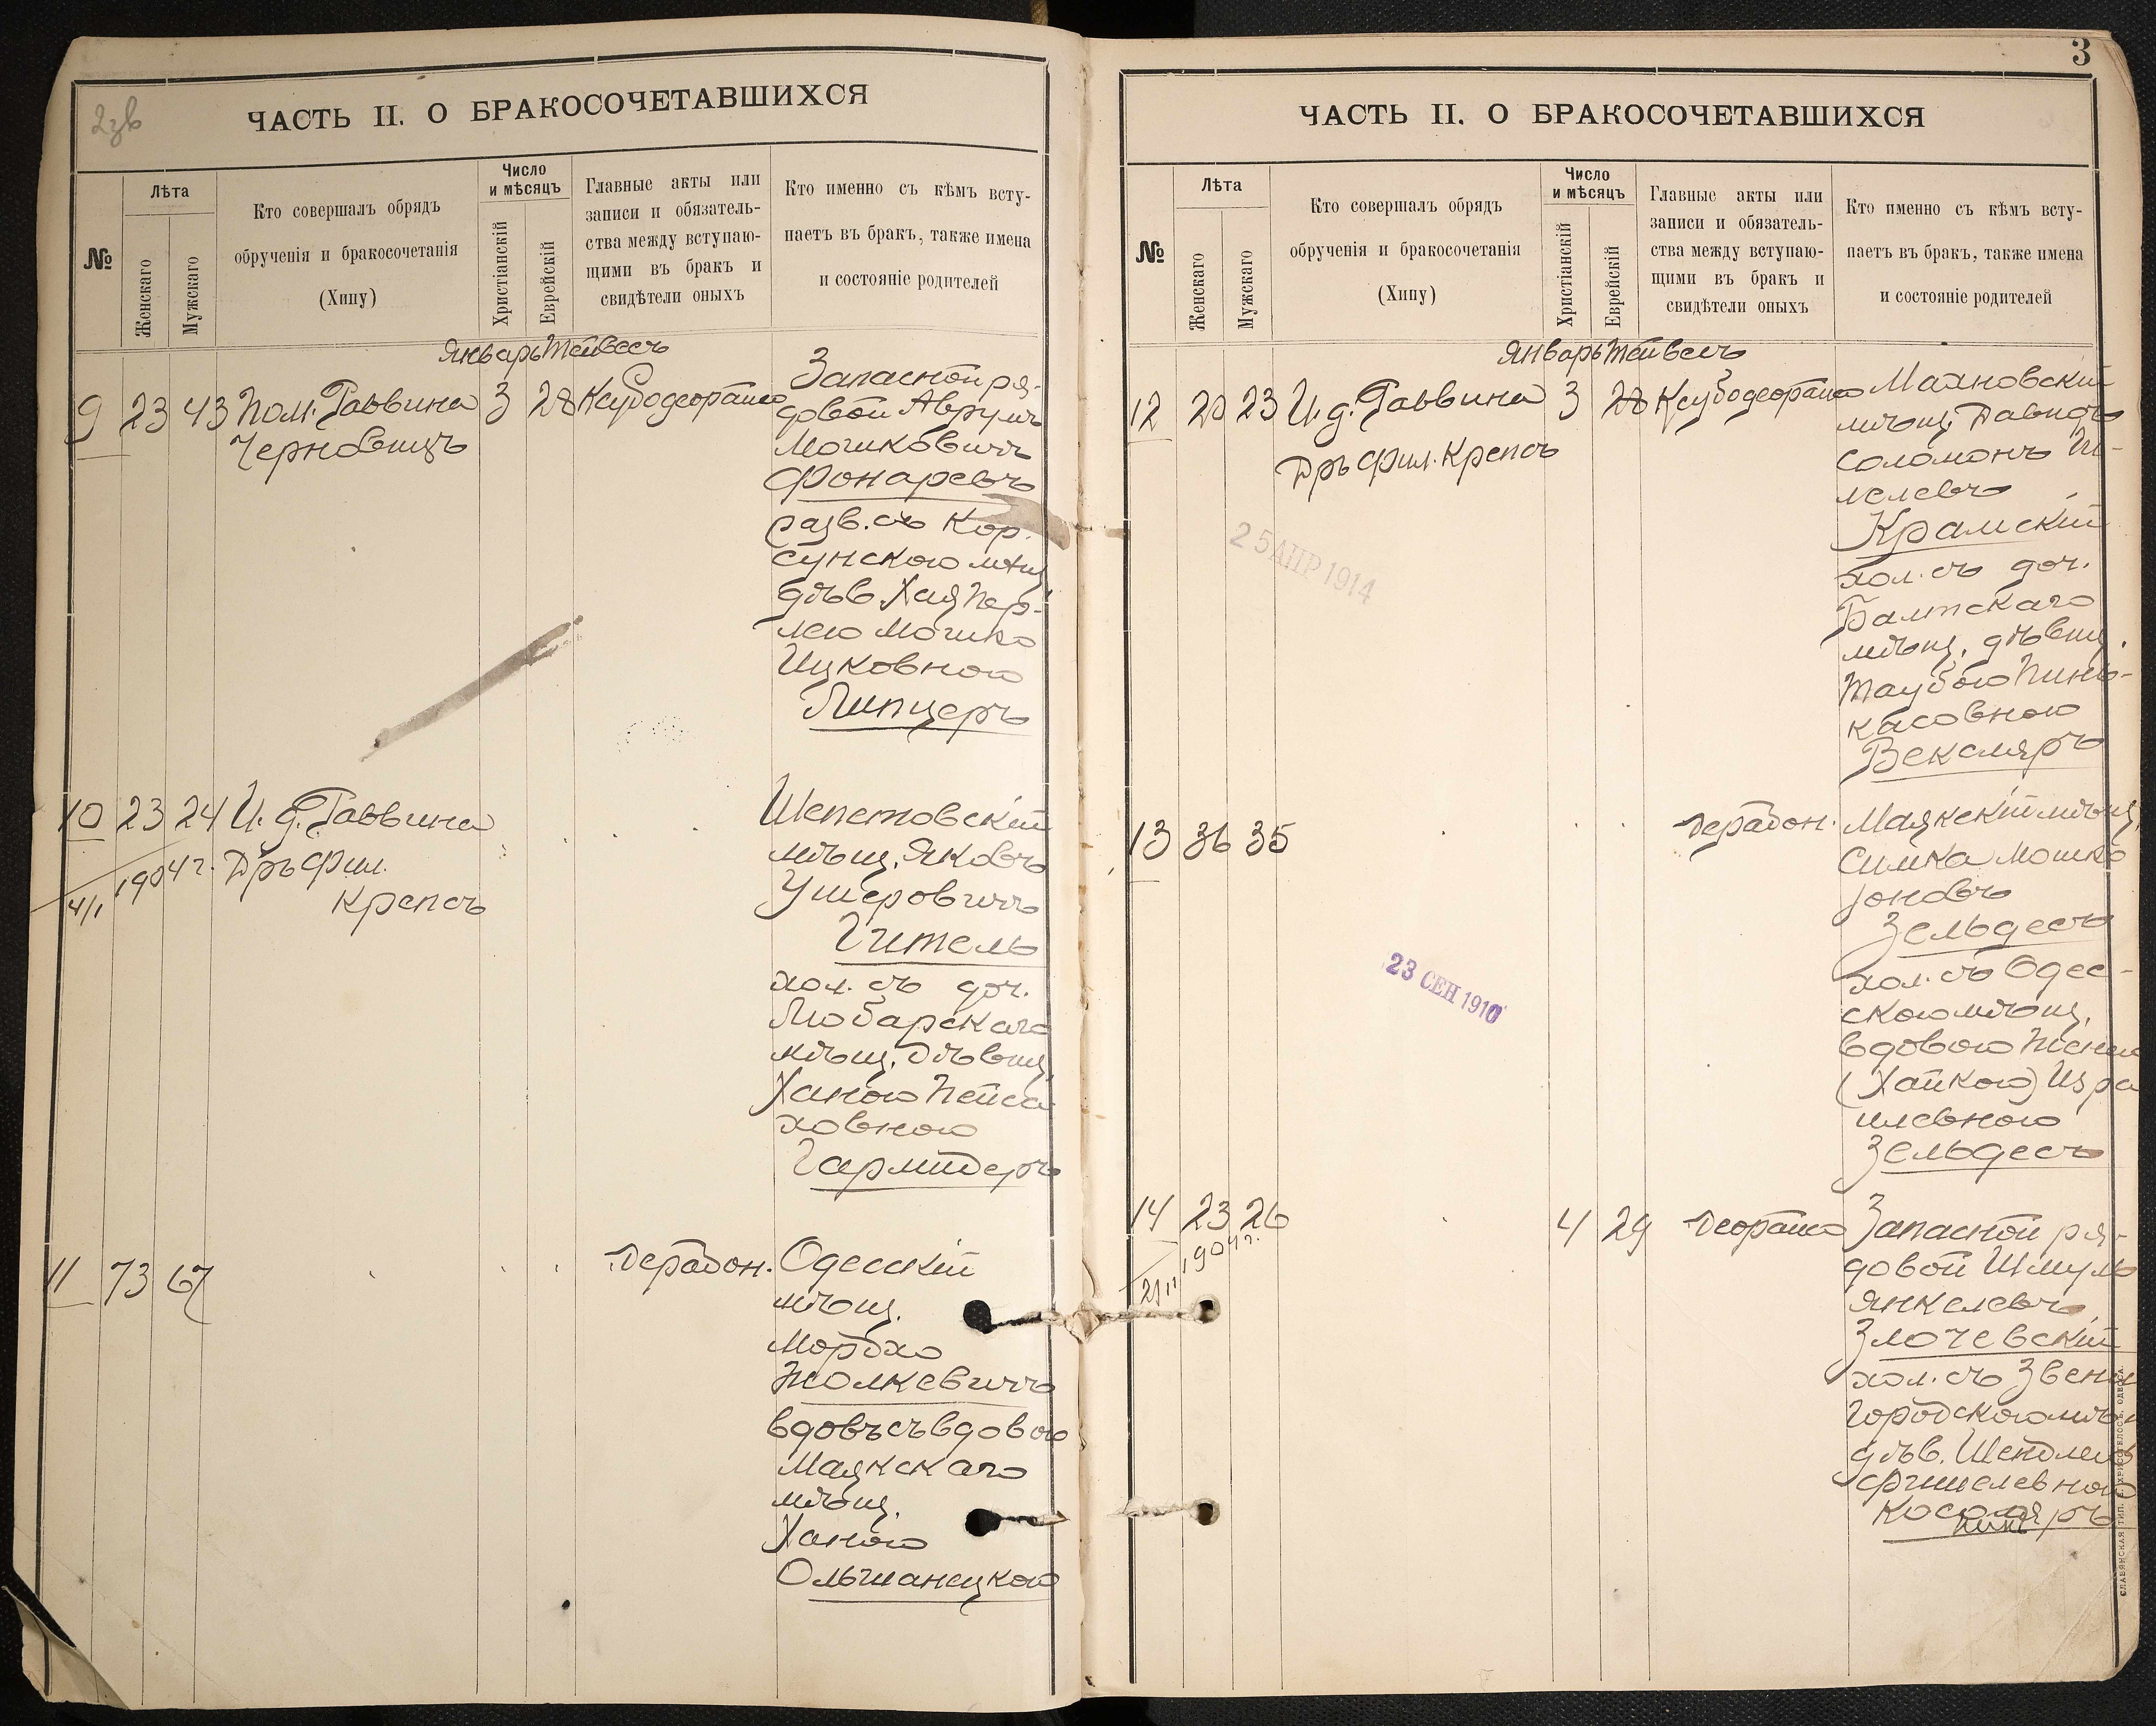 2зв
ЧАСТЬ II. О БРАКОСОЧЕТАВШИХСЯ
№
Лѣта
Женскаго
Мужскаго
Кто совершалъ обрядъ
обрученія и бракосочетанія
(Хипу)
Число
и мѣсяцъ
Христіанскій
Еврейскій
Главные акты или
записи и обязатель-
ства между вступаю-
щими въ бракъ и
свидѣтели оныхъ
Кто именно съ кѣмъ всту-
паетъ въ бракъ, также имена
и состояніе родителей
Январь Тейвесъ
9 23 43 Пом. Раввина 3 28
Черновицъ
Запасной ря-
довой Аврумъ
Мошковичъ
Фонаревъ
разв. съ Кор-
сунскою мѣщ.
дѣв. Хая Пер-
лею Мошко
Ицковною
Липцеръ
10 23 24 И. д. Раввина
Дръ Фил.
Крепсъ
4/I 1904 г.
Шепетовскій
мѣщ. Яковъ
Ушеровичъ
Гитель
хол. съ доч.
Любарскаго
мѣщ. дѣвиц.
Ханою Пейса
ховною
Гармидеръ
11 73 67 Дерабон.
Одесскій
мѣщ.
Мордхо
Жолкевичъ
вдовъ съ вдовою
Маякскаго
мѣщ.
Ханою
Ольшанецкою
3
ЧАСТЬ II. О БРАКОСОЧЕТАВШИХСЯ
№
Лѣта
Женскаго
Мужскаго
Кто совершалъ обрядъ
обрученія и бракосочетанія
(Хипу)
Число
и мѣсяцъ
Христіанскій
Еврейскій
Главные акты или
записи и обязатель-
ства между вступаю-
щими въ бракъ и
свидѣтели оныхъ
Кто именно съ кѣмъ всту-
паетъ въ бракъ, также имена
и состояніе родителей
Январь Тейвесъ
12 20 23 И. д. Раввина 3 28
Дръ Фил. Крепсъ
25 АПР 1914
Махновскій
мѣщ. Давидъ
Соломонъ
Крамскій
хол. съ доч.
Балтскаго
мѣщ. дѣвиц.
Таубою Пинь-
касовною
Векслярь
13 36 35 Дерабон.
23 СЕН 1910
Маякскій мѣщ.
Симха Мошко
Іоновъ
Зельдесъ
хол. съ Одес-
скою мѣщ.
вдовою Женей
(Хайкою) Изра
илевною
Зельдесъ
14 23 26 4 29 Деорайсо
1904 г.
Запасной ря-
довой Шмуль
Янкелевъ
Злочевскій
хол. съ Звени
городскою мѣщ
дѣв. Шейдлею
Фишелевною
СЛАВЯНСКАЯ ТИП. Е. ХРИСОГЕЛОСЪ, ОДЕССА.